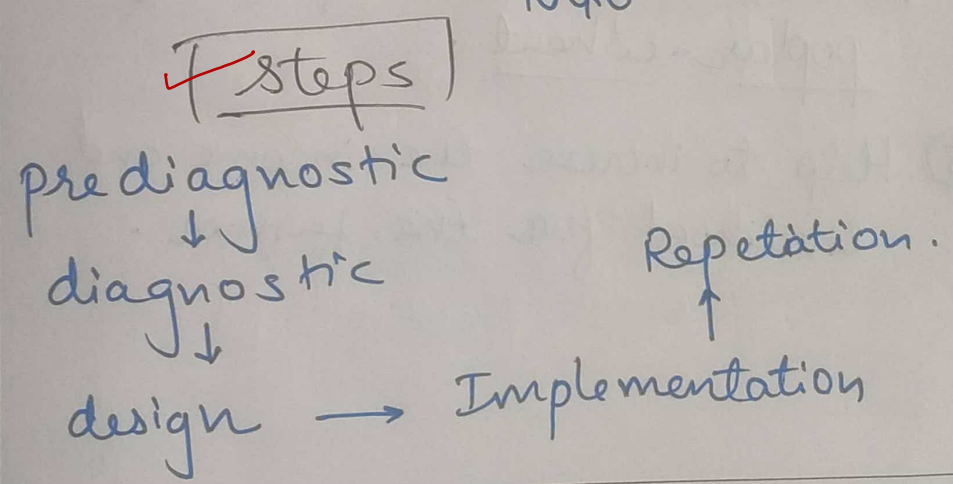 steps
prediagnostic
↓
diagnostic
↓
design → Implementation
↑
Repetation.